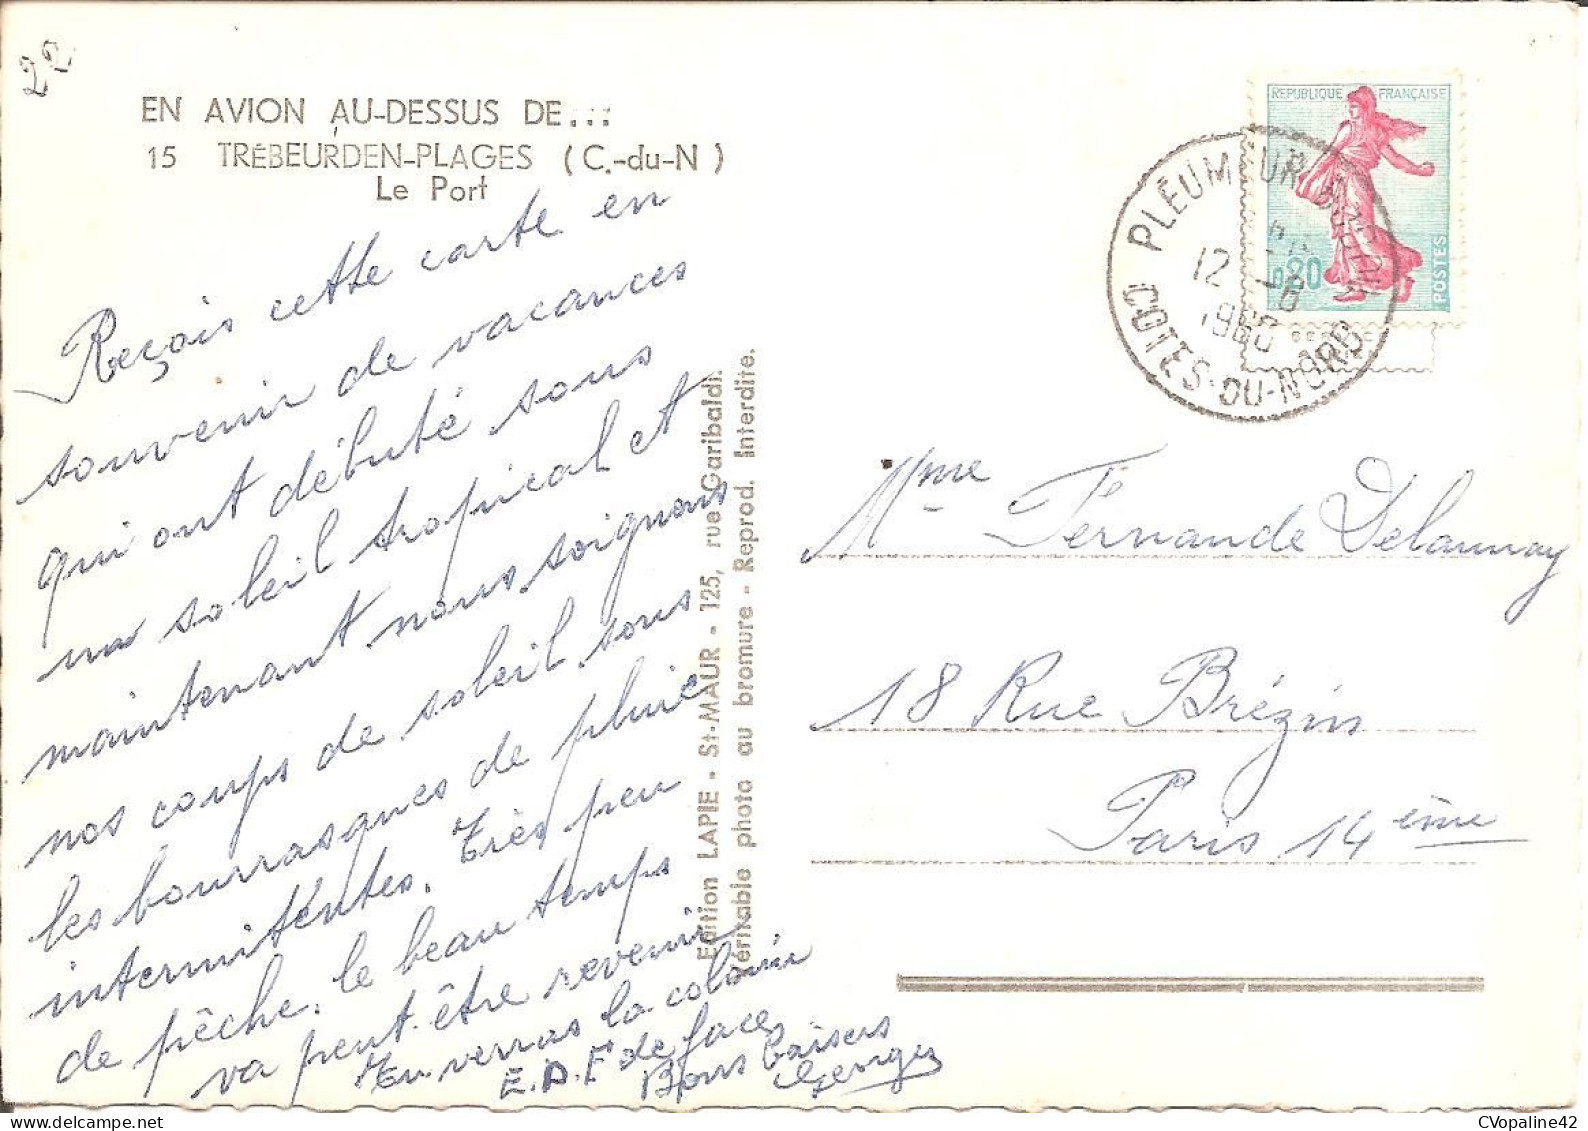 22
EN AVION AU-DESSUS DE...
15 TRÉBEURDEN-PLAGES (C.-du-N)
Le Port
Reçois cette carte en
souvenir de vacances
qui ont débuté sous
un soleil tropical et
maintenant nous soignons
nos coups de soleil sous
les bourrasques de pluie
intermitentes. Très peu
de pêche. le beau temps
va peut-être revenir
Tu verras la colonie
E.D.F de face
Bons baisers
Georges
Edition LAPIE - St-MAUR - 125, rue Garibaldi.
Véritable photo au bromure - Reprod. Interdite.
REPUBLIQUE FRANÇAISE
0,20
POSTES
PLEUMEUR BODOU
12
1960
COTES-DU-NORD
Mme Fernande Delaunay
18 Rue Brézin
Paris 14ème
CVopaline42